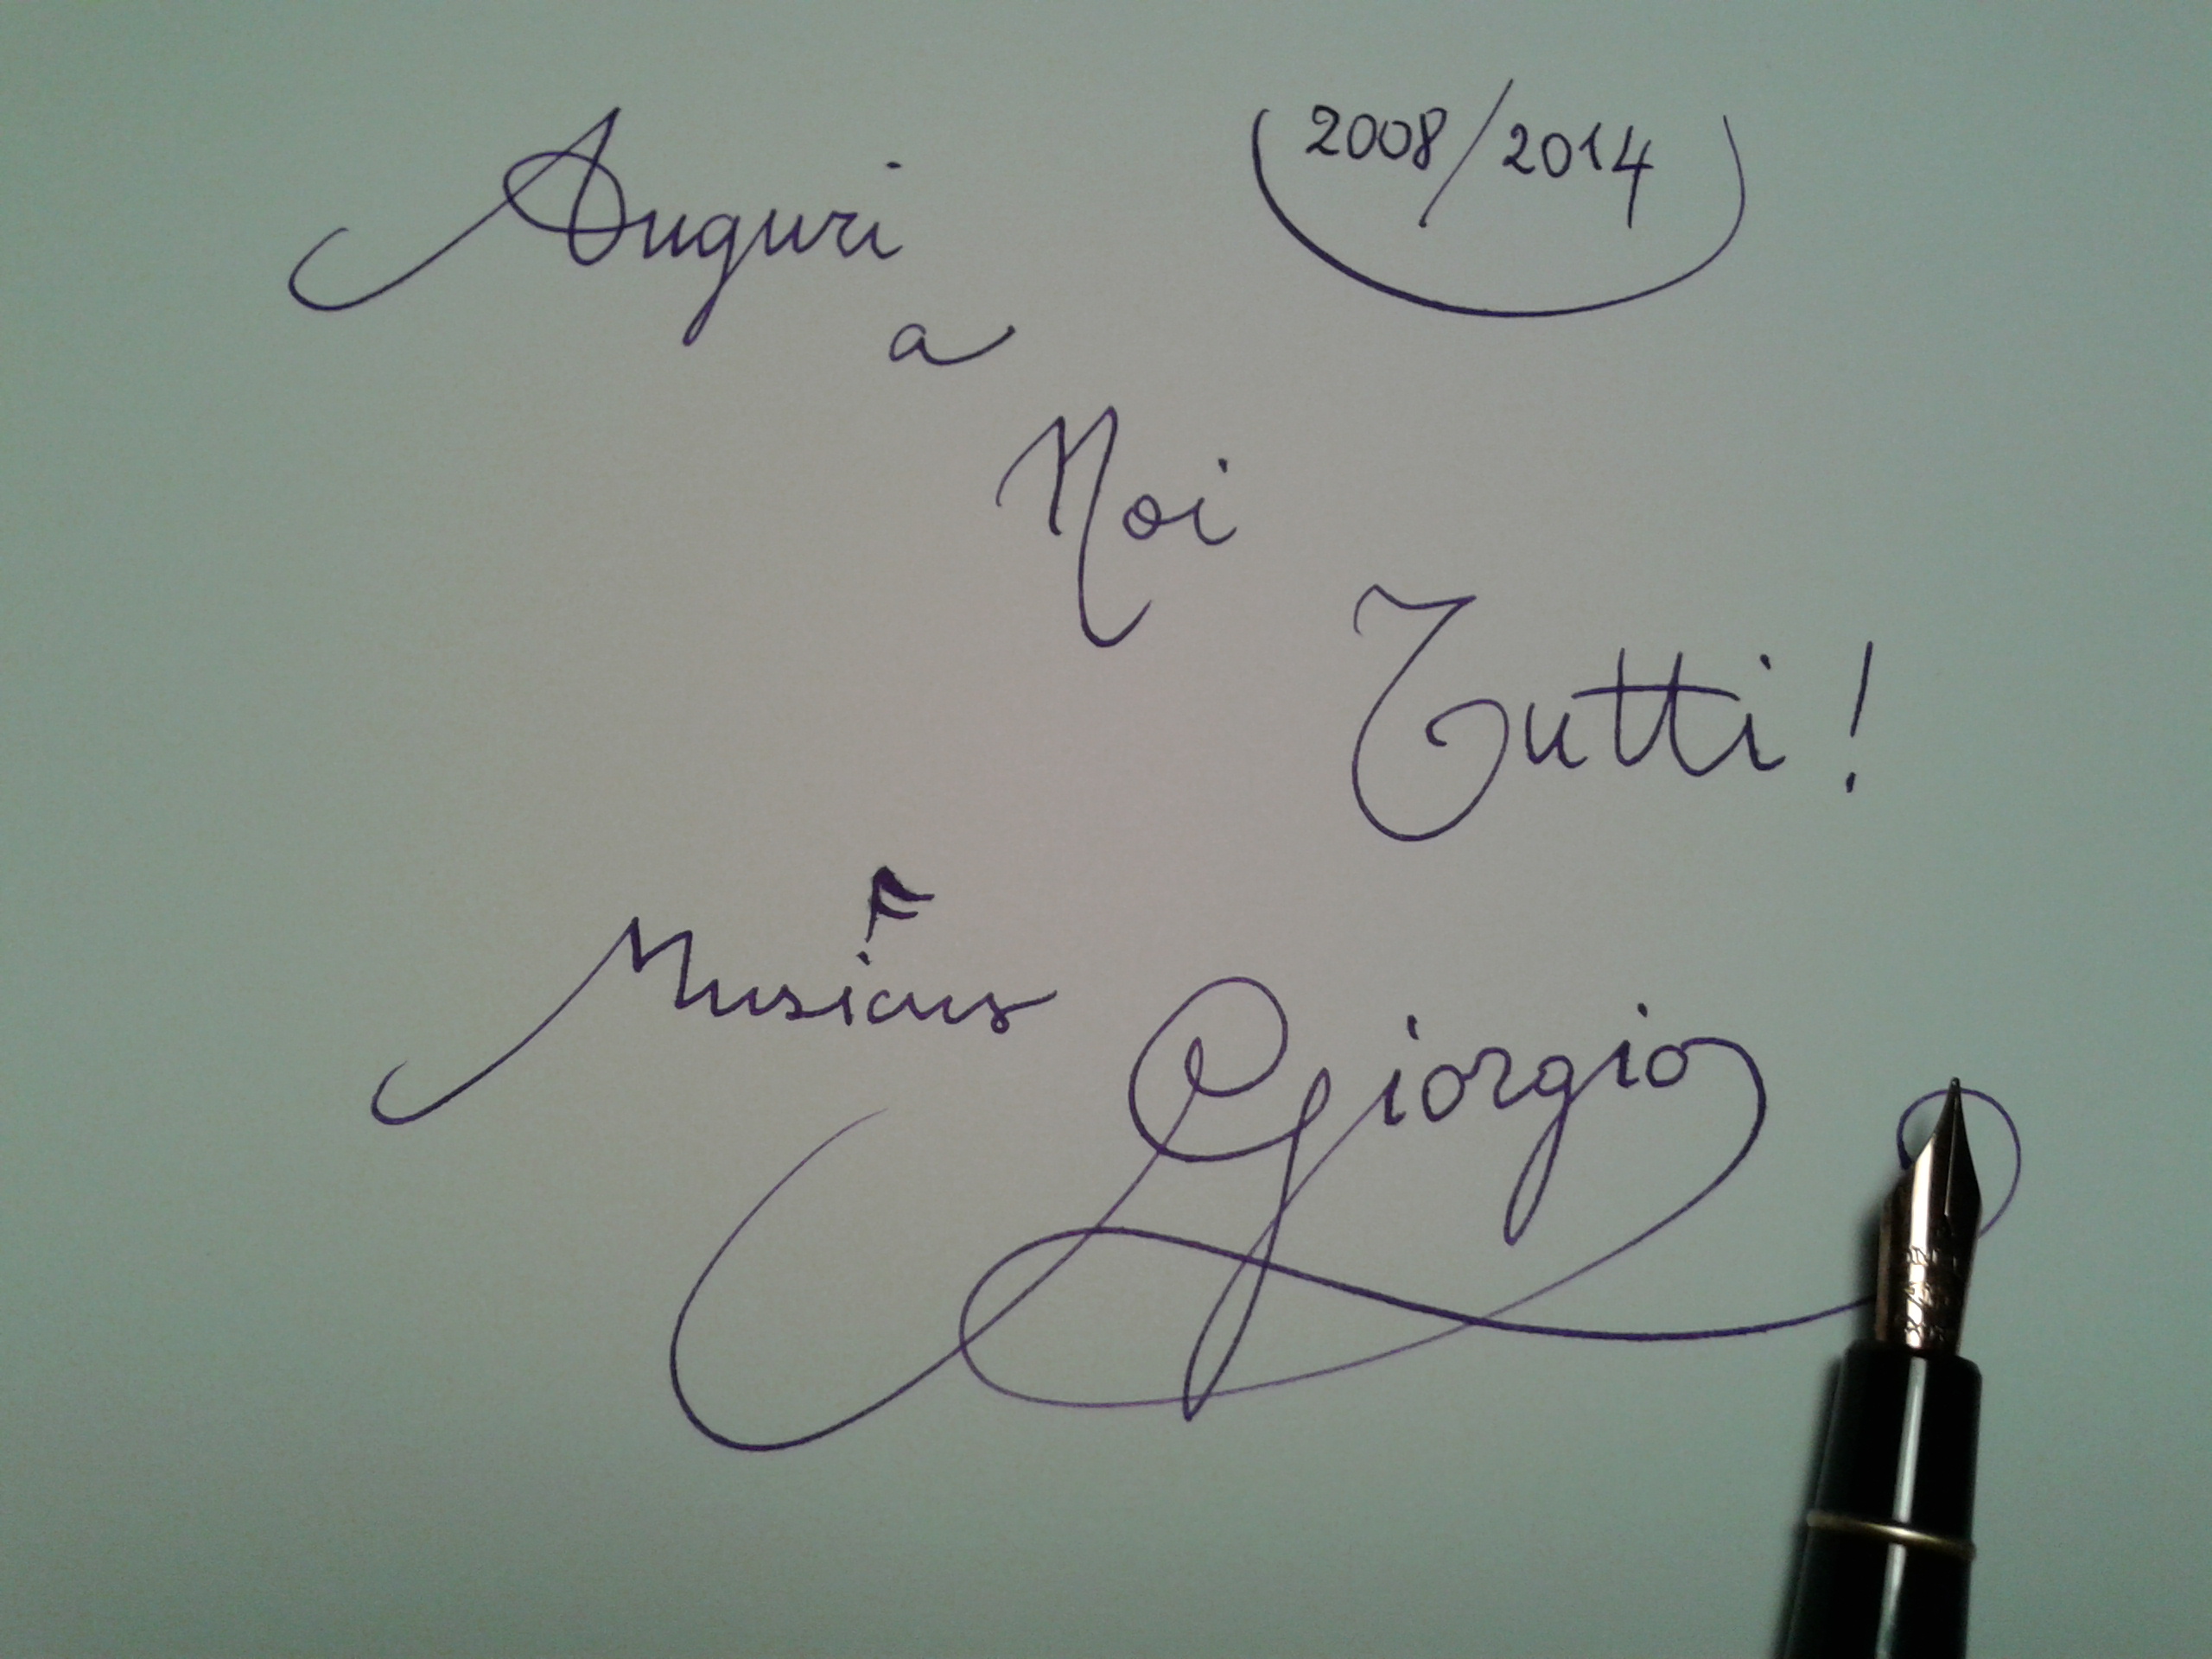 Auguri
(2008/2014)
a
Noi
Tutti!
Musicus
Giorgio